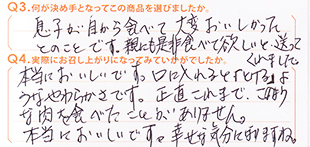 Q3.何が決め手となってこの商品を選びましたか。
息子が自から食べて大変おいしかった
とのことです。親にも是非食べて欲しいと、送って
くれました。
Q4.実際にお召し上がりになってみていかがでしたか。
本当においしいです。口に入れるととける
ようなやわらかさです。正直これまで、このような
肉を食べたことがありません。
本当においしいです。幸せな気分になりますね。